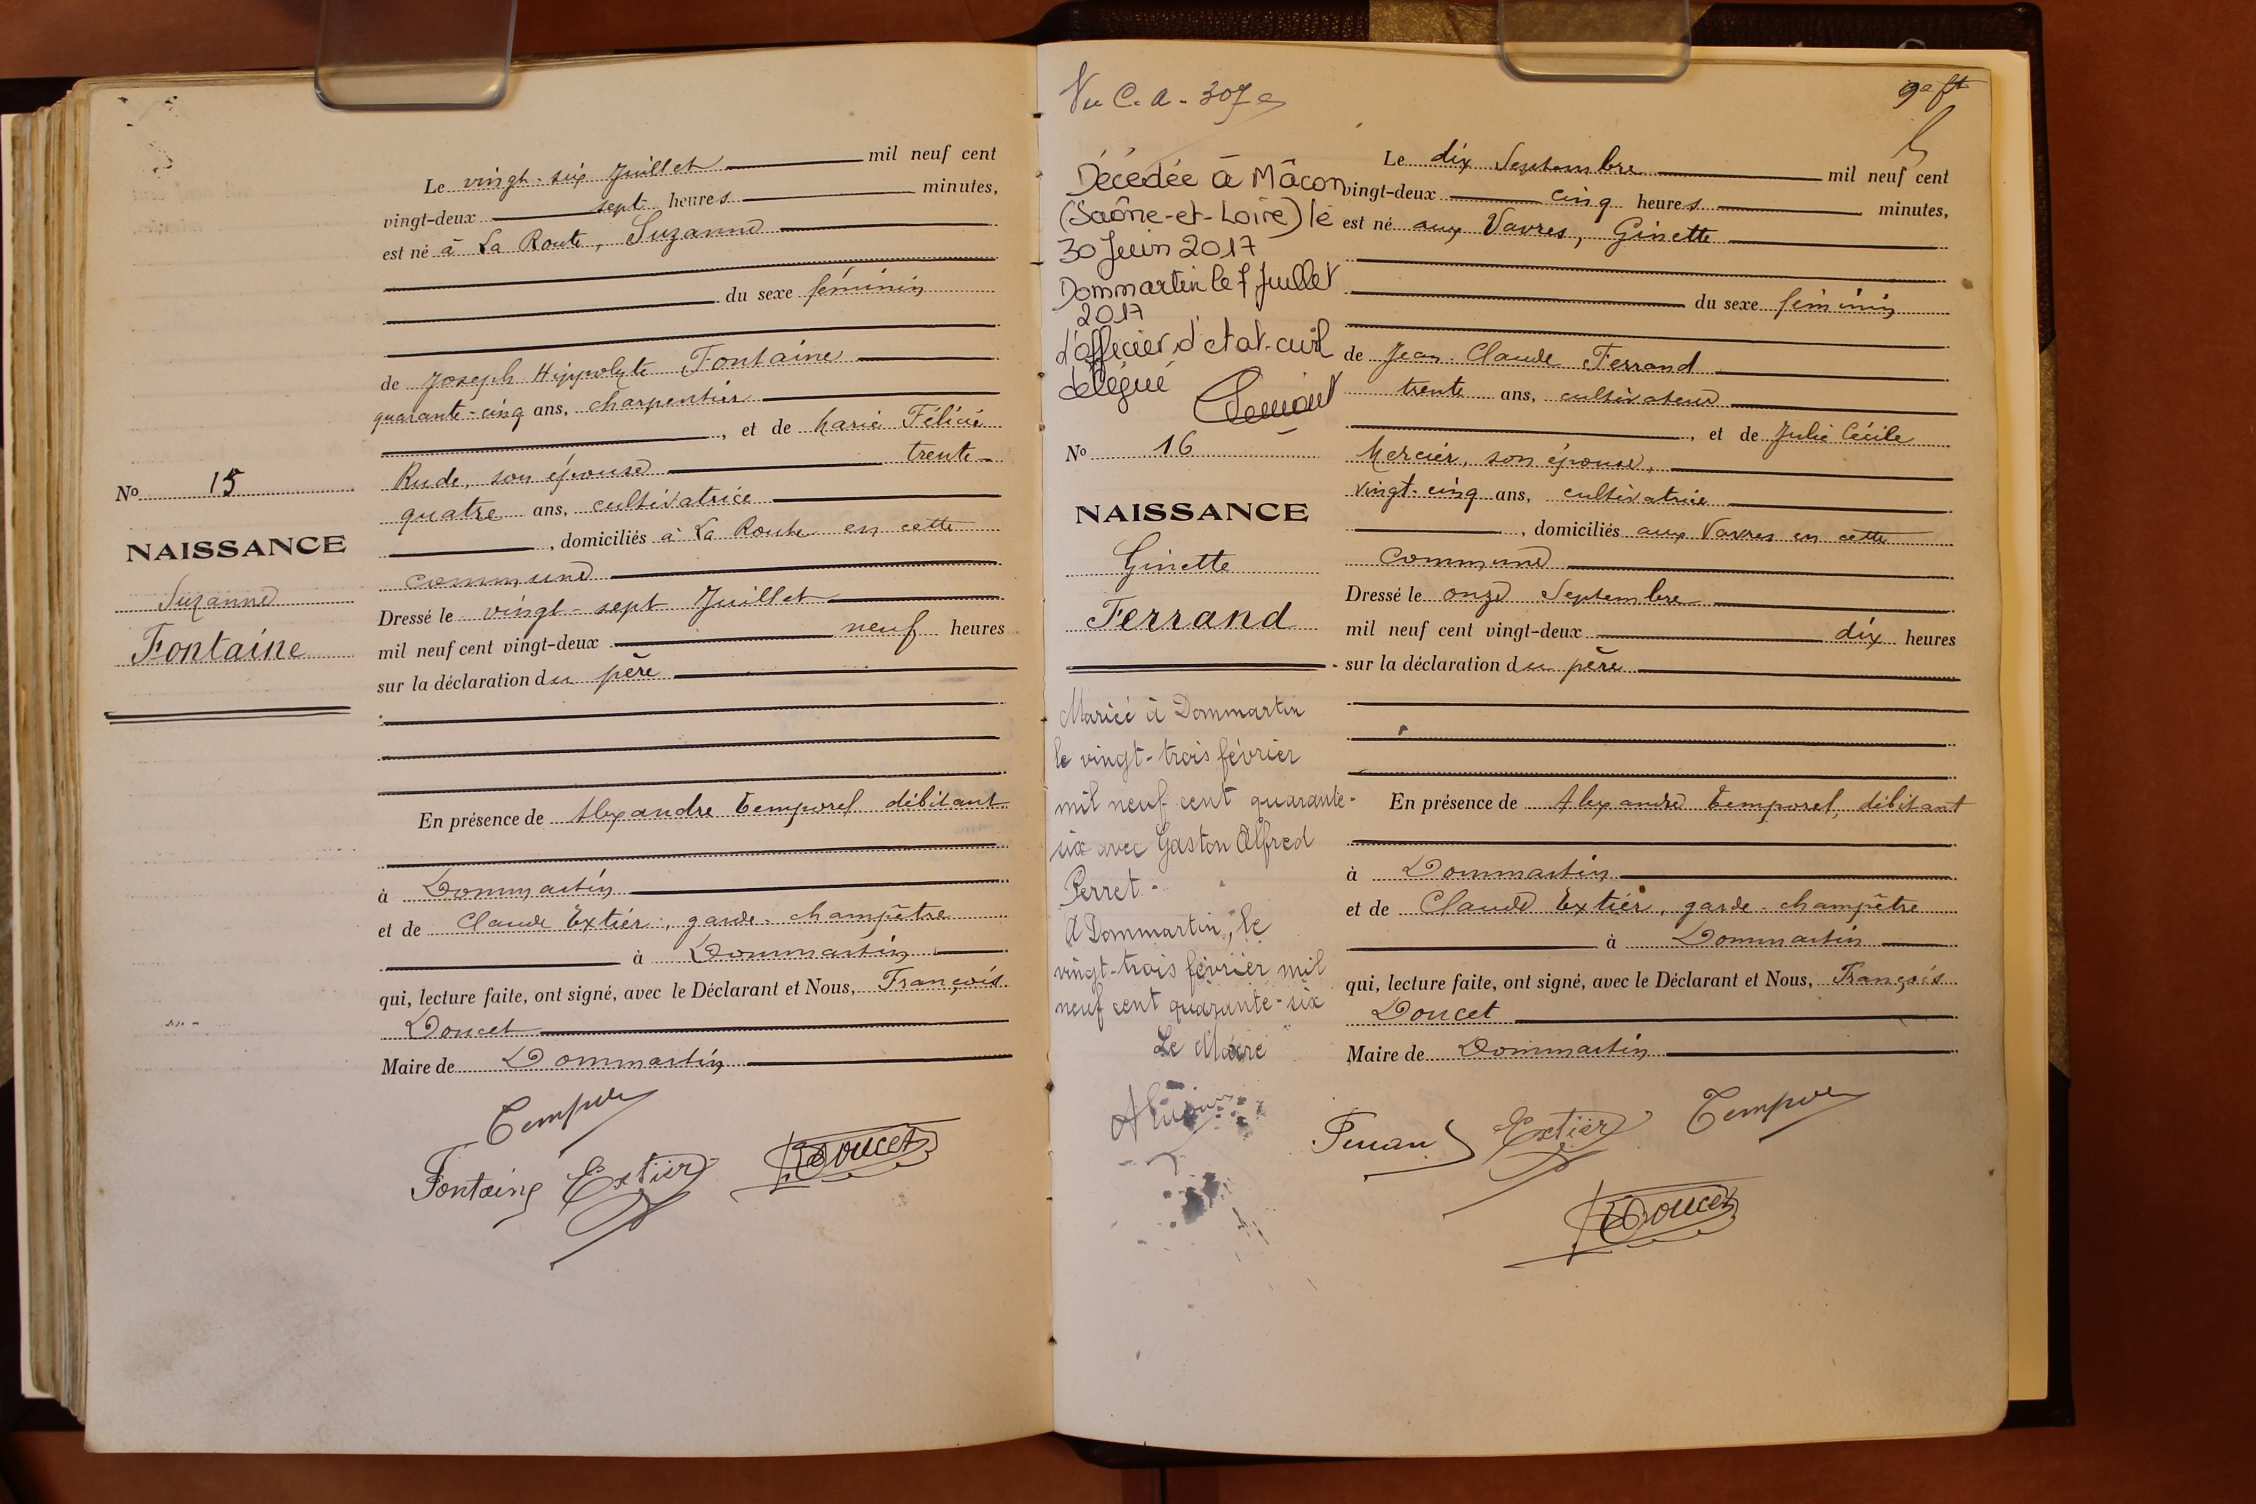 Le vingt-six Juillet mil neuf cent
vingt-deux sept heures minutes,
est né à La Route, Suzanne
du sexe féminin
de Joseph Hippolyte Fontaine
quarante-cinq ans, charpentier
, et de Marie Félicie
Rude, son épouse trente-
quatre ans, cultivatrice
, domiciliés à La Route en cette
commune
Dressé le vingt-sept Juillet
mil neuf cent vingt-deux neuf heures
sur la déclaration du père
En présence de Alexandre Temporel débitant
à Dommartin
et de Claude Extier, garde-champêtre
à Dommartin
qui, lecture faite, ont signé, avec le Déclarant et Nous, François
Doucet
Maire de Dommartin
Fontaine Extier Doucet
No 15
NAISSANCE
Suzanne
Fontaine
Vu C. a.
Décédée à Mâcon
(Saône-et-Loire) le
30 Juin 2017
Dommartin le 7 Juillet
2017
l'officier d'état-civil
délégué
No 16
NAISSANCE
Ginette
Ferrand
Mariée à Dommartin
le vingt-trois février
mil neuf cent quarante-
six avec Gaston Alfred
Perret.
A Dommartin, le
vingt-trois février mil
neuf cent quarante-six
Le Maire
Le dix Septembre mil neuf cent
vingt-deux cinq heures minutes,
est né aux Vavres, Ginette
du sexe féminin
de Jean-Claude Ferrand
trente ans, cultivateur
, et de Julie Cécile
Mercier, son épouse,
vingt-cinq ans, cultivatrice
, domiciliés aux Vavres en cette
commune
Dressé le onze Septembre
mil neuf cent vingt-deux dix heures
sur la déclaration du père
En présence de Alexandre Temporel, débitant
à Dommartin
et de Claude Extier, garde-champêtre
à Dommartin
qui, lecture faite, ont signé, avec le Déclarant et Nous, François
Doucet
Maire de Dommartin
Extier
Doucet